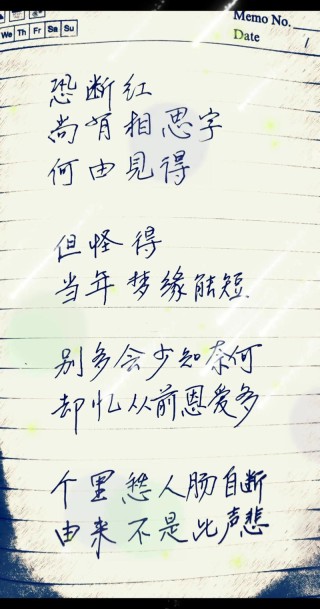 Memo No.
We Th Fr Sa Su
Date /
恐断红
尚有相思字
何由见得
但怪得
当年梦缘能短
别多会少知奈何
却忆从前恩爱多
个里愁人肠自断
由来不是此声悲